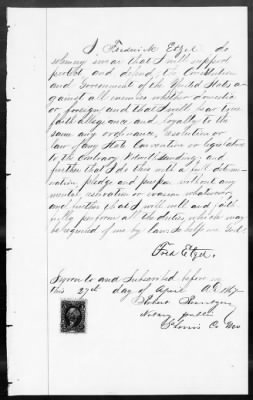 I Frederick Etzel do
solemnly swear that I will support
protect and defend, the Constitution
and Government of the United States a-
gainst all enemies whether domestic
or foreign, and that I will bear true
faith allegiance and loyalty to the
same any ordinance, resolution or
law of any State Convention or legislature
to the contrary Notwithstanding, and
further that I do this with a full determi-
nation, pledge and purpose without any
mental reservation or evasion whatsoever
and further that I will well and faith-
fully perform all the duties which may
be required of me by law. So help me God.
Fred Etzel.
Sworn to and Subscribed before me
this 27th day of April A.D.
Robert
Notary public
St Louis Co Mo